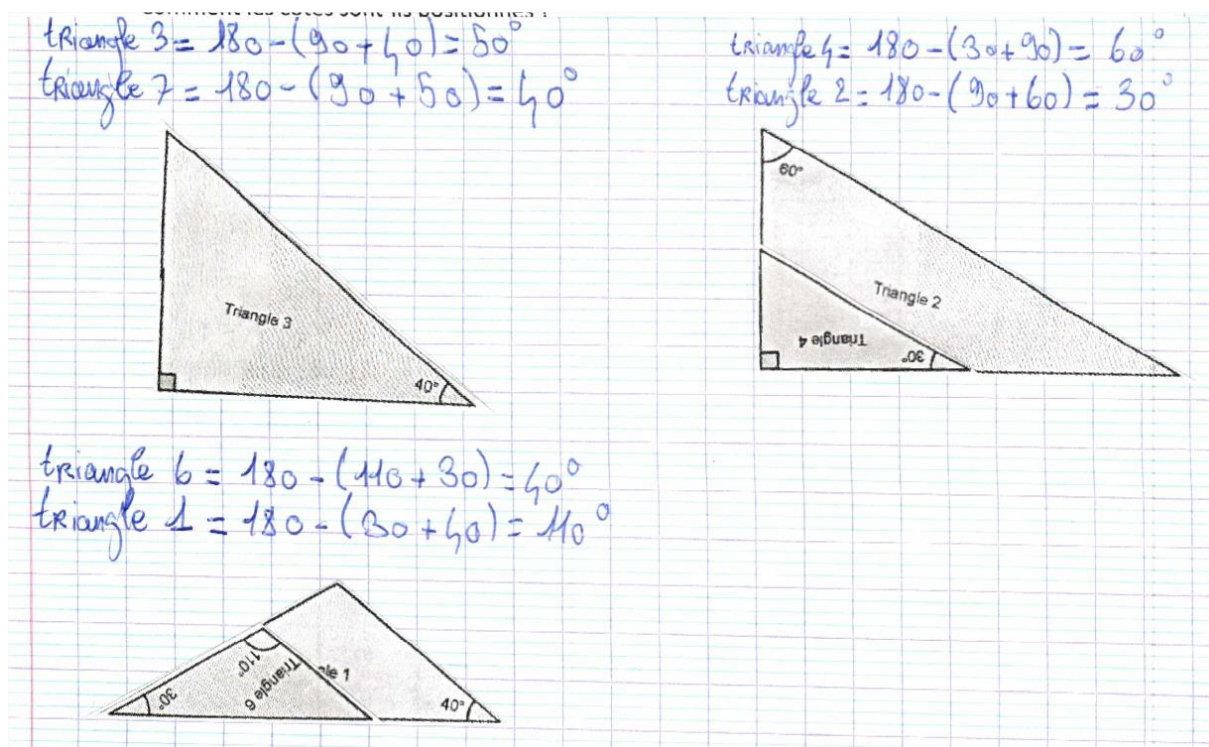 comment les côtés sont-ils positionnés ?
triangle 3 = 180-(90+40) = 50°
triangle 7 = 180-(90+50) = 40°
triangle 4 = 180-(30+90) = 60°
triangle 2 = 180-(90+60) = 30°
Triangle 3
40°
60°
Triangle 2
Triangle 4
30°
triangle 6 = 180-(110+30) = 40°
triangle 1 = 180-(30+40) = 110°
110°
Triangle 6
gle 1
30°
40°